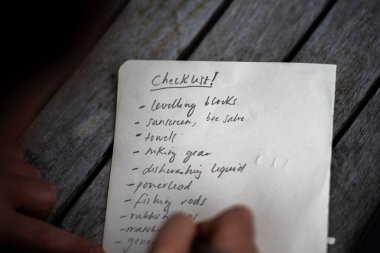 Checklist!
- levelling blocks
- sunscreen, bee salve
- towels
- hiking gear
- dishwashing liquid
- powerlead
- fishing rods
- rubbish